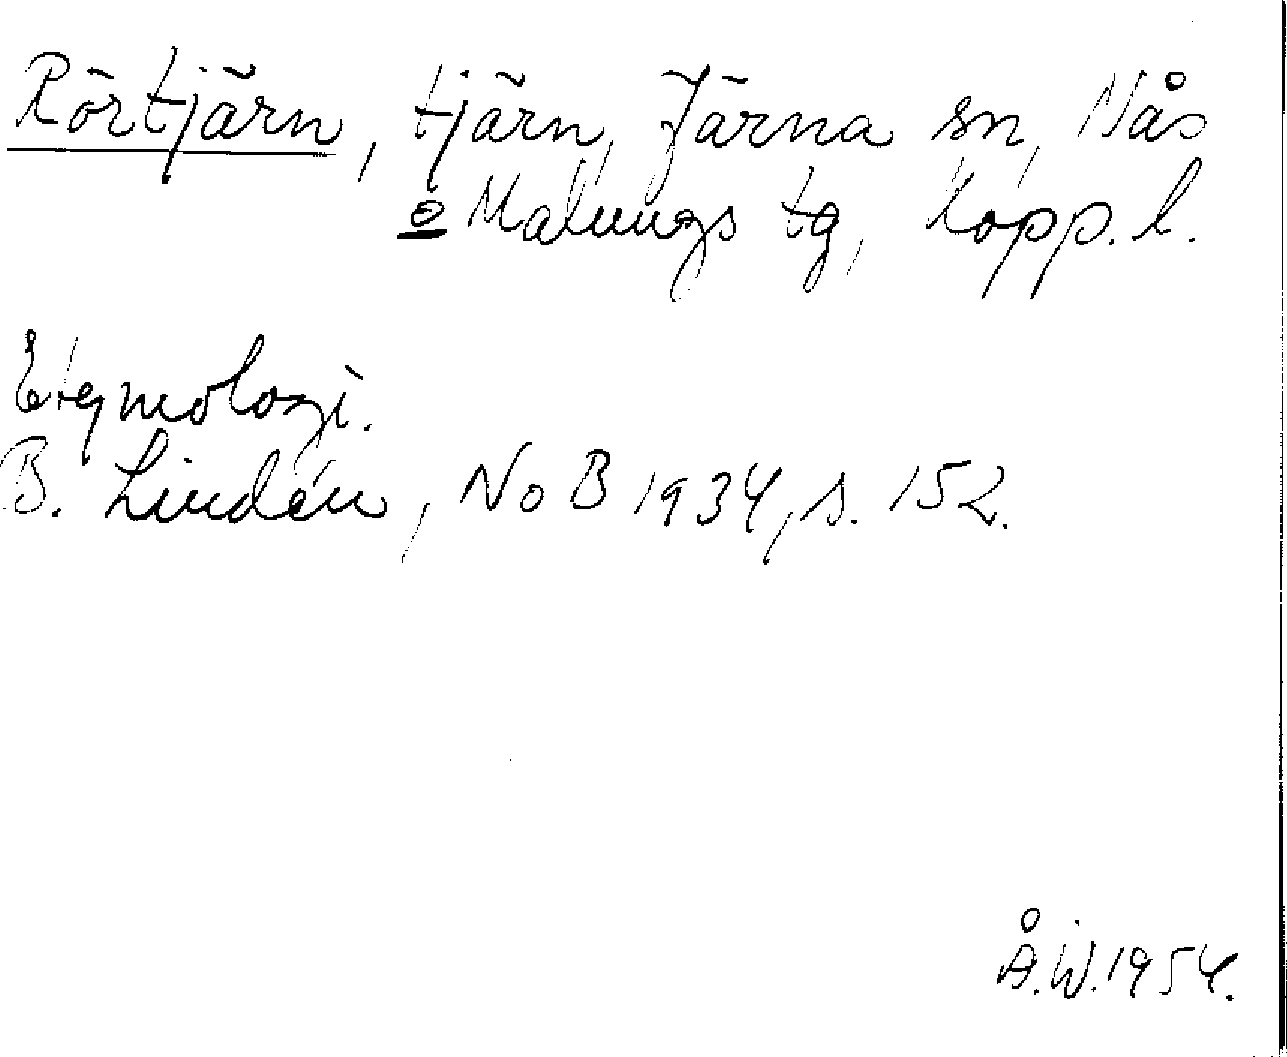 Rörtjärn, tjärn, Järna sn, Nås
o Malungs tg, Kopp. l.
Etymologi.
B. Lindén, NoB 1934, s. 152.
Å.W.1954.